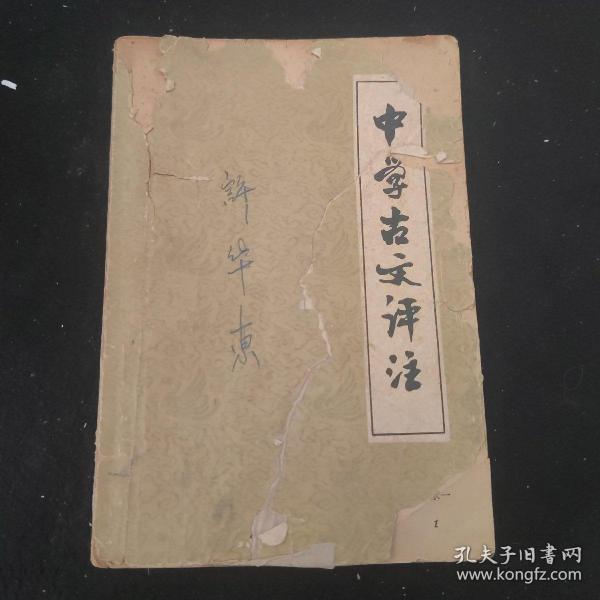 中学古文评注
许华东
孔夫子旧書网
www.kongfz.com